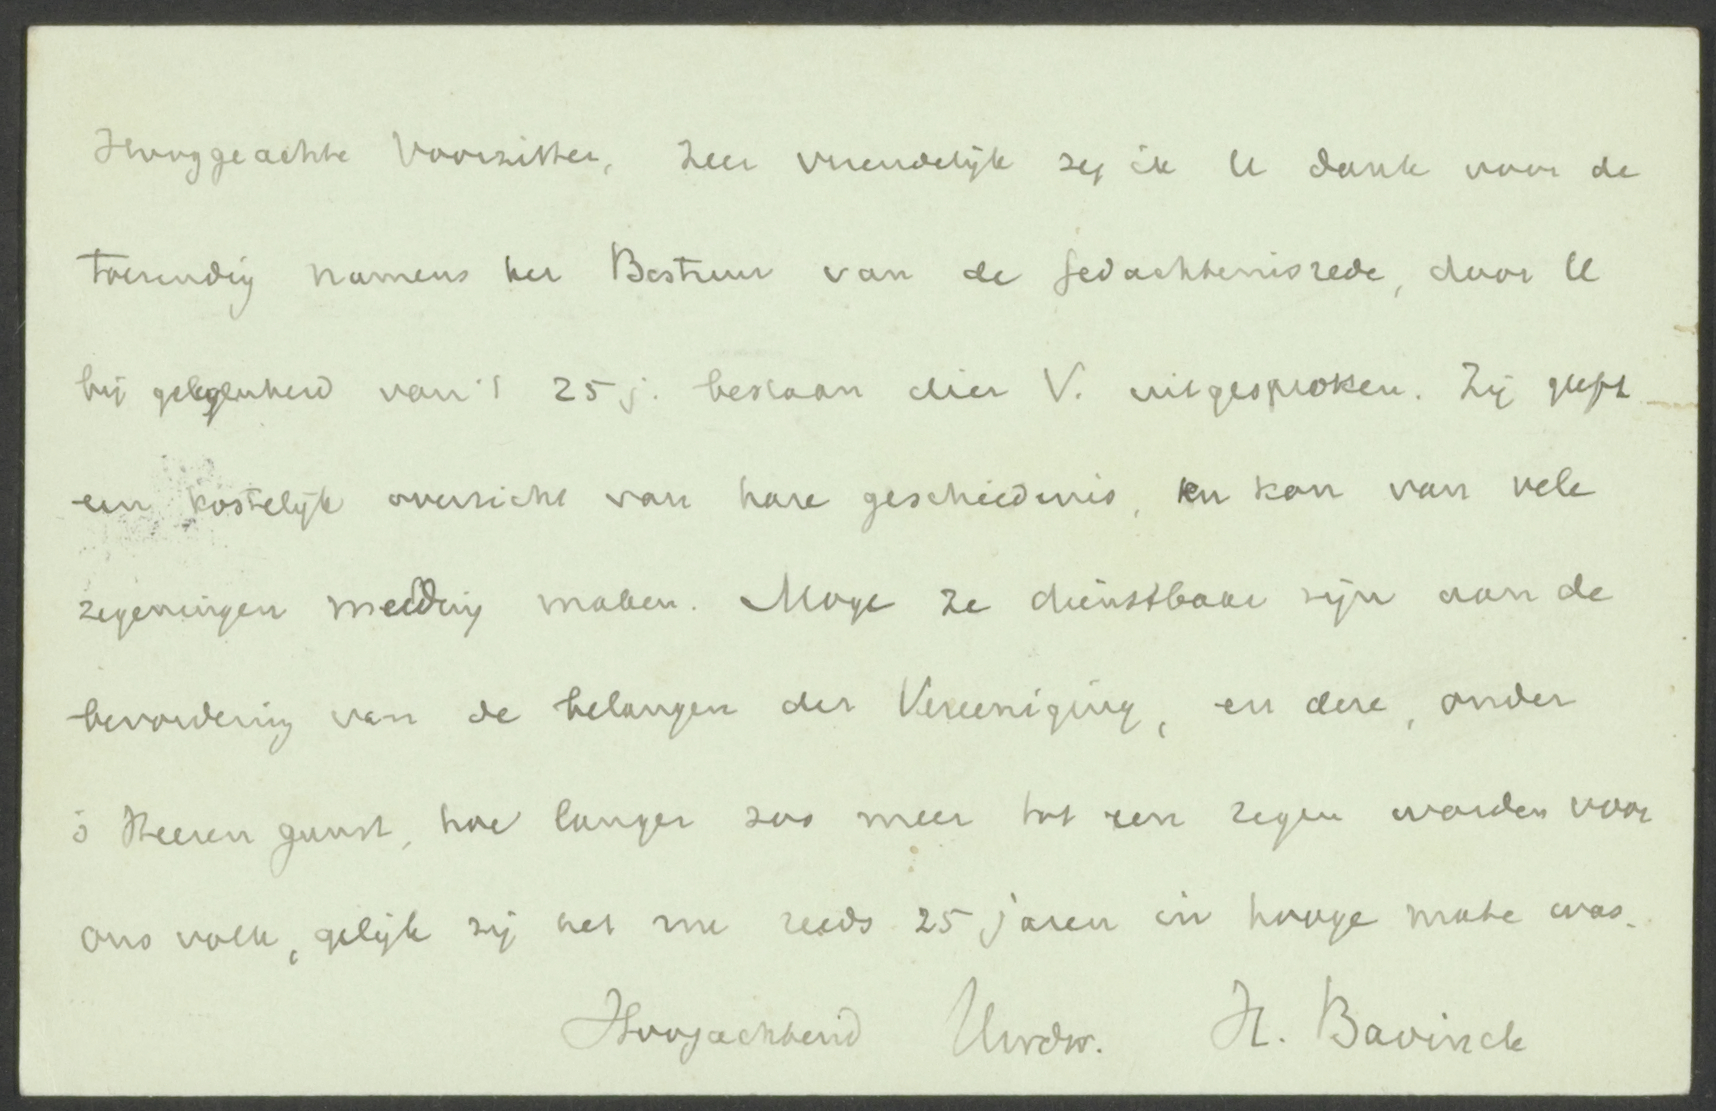 Hooggeachte Voorzitter, Zeer vriendelijk zeg ik U dank voor de
toezending namens het Bestuur van de Gedachtenisrede, door U
bij gelegenheid van 't 25 j. bestaan dier V. uitgesproken. Zij geeft
een kostelijk overzicht van hare geschiedenis, en kan van vele
zegeningen melding maken. Moge ze dienstbaar zijn aan de
bevordering van de belangen der Vereeniging, en deze, onder
's Heeren gunst, hoe langer zoo meer tot een zegen worden voor
ons volk, gelijk zij het nu reeds 25 jaren in hooge mate was.
Hoogachtend Uwdw. H. Bavinck